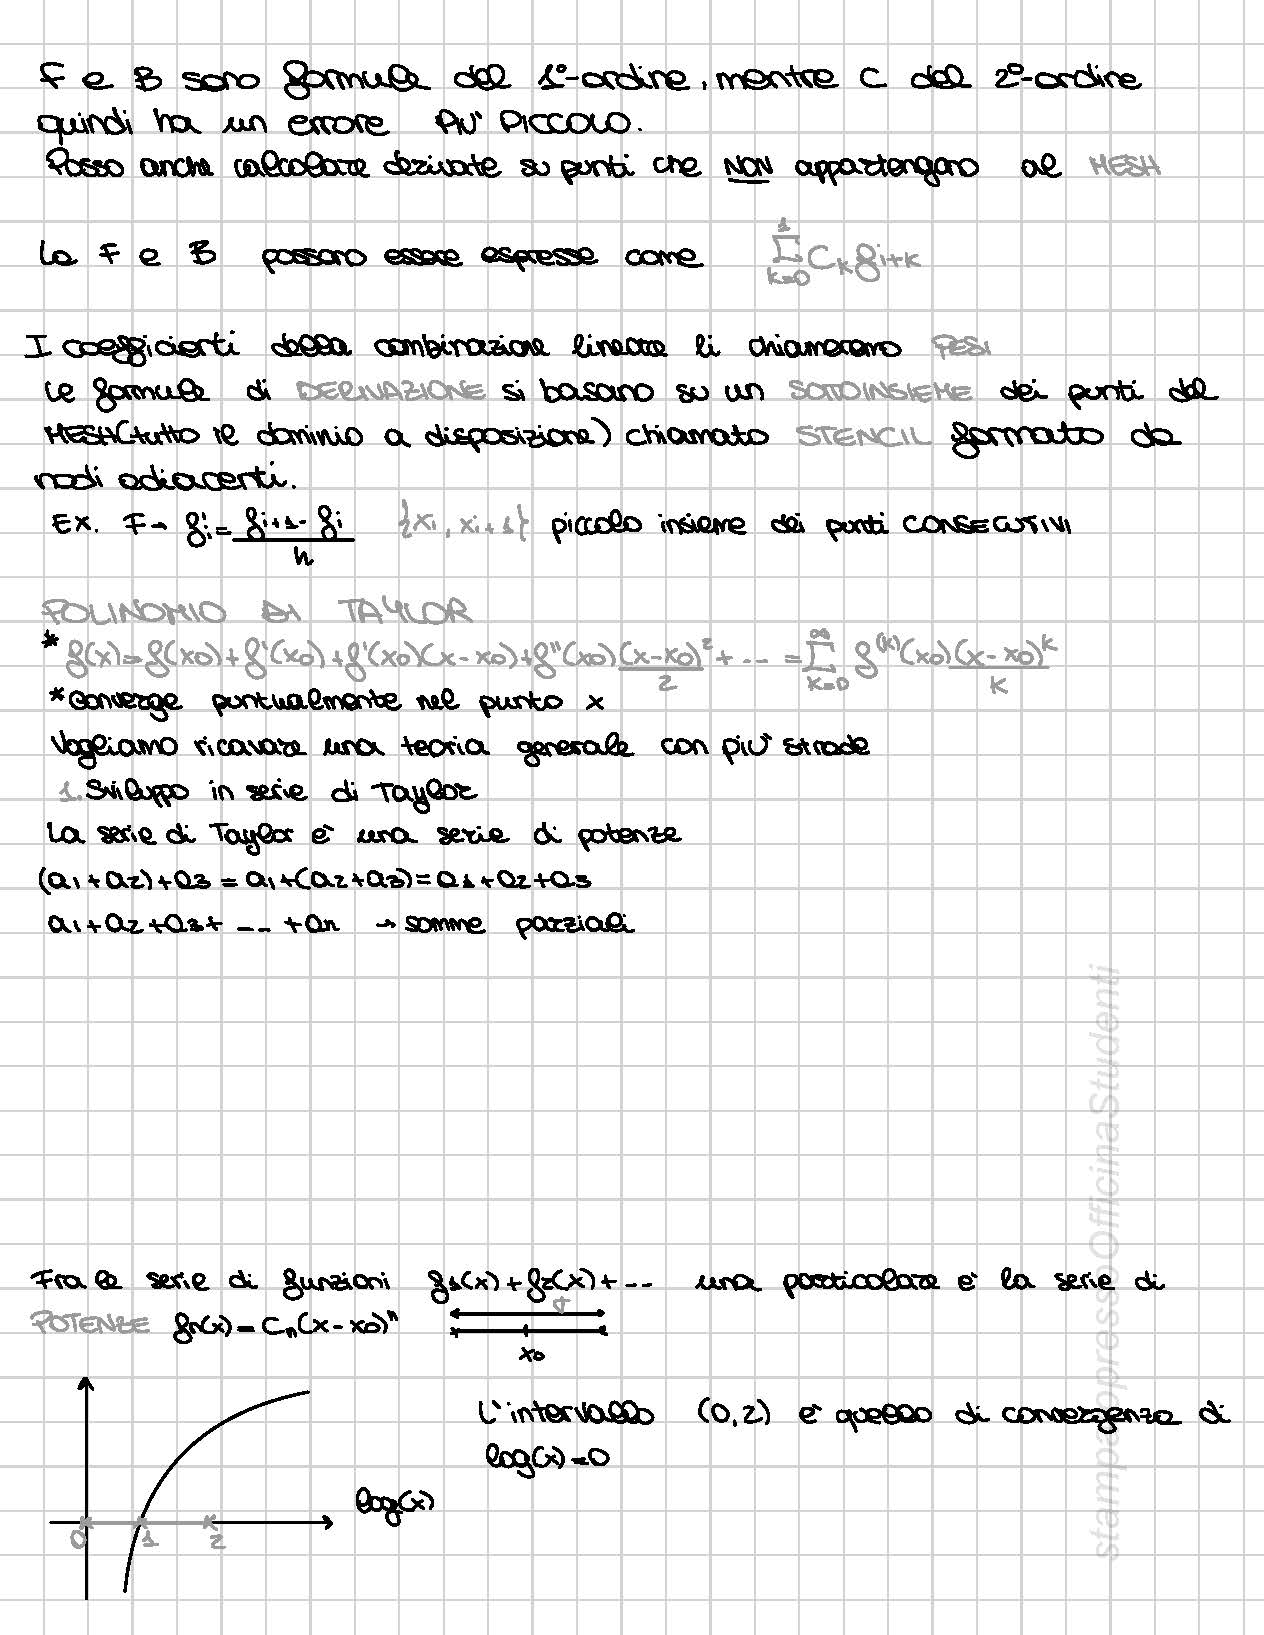 F e B sono formule del 1°-ordine, mentre C del 2°-ordine
quindi ha un errore PIU' PICCOLO.
Posso anche calcolare derivate su punti che NON appartengono al MESH
Le F e B possono essere espresse come \sum_{k=0}^{1} C_k f_{i+k}
I coefficienti della combinazione lineare li chiameremo PESI
Le formule di DERIVAZIONE si basano su un SOTTOINSIEME dei punti del
MESH (tutto il dominio a disposizione) chiamato STENCIL formato da
nodi adiacenti.
EX. F→ f'_i = \frac{f_{i+1} - f_i}{h} {x_i, x_{i+1}} piccolo insieme dei punti CONSECUTIVI
POLINOMIO DI TAYLOR
* f(x)=f(x0)+f'(x0)+f'(x0)(x-x0)+f''(x0)\frac{(x-x0)^2}{2}+... = \sum_{k=0}^{∞} f^{(k)}(x0)\frac{(x-x0)^k}{k}
*converge puntualmente nel punto x
Vogliamo ricavare una teoria generale con più strade
1. Sviluppo in serie di Taylor
La serie di Taylor è una serie di potenze
(a1+a2)+a3 = a1+(a2+a3)=a1+a2+a3
a1+a2+a3+ ... +an → somme parziali
Fra le serie di funzioni f1(x)+f2(x)+... una particolare è la serie di
POTENZE fn(x)=Cn(x-x0)^n
x0
L'intervallo (0,2) è quello di convergenza di
log(x)=0
log(x)
0 1 2
stampato presso OfficinaStudenti